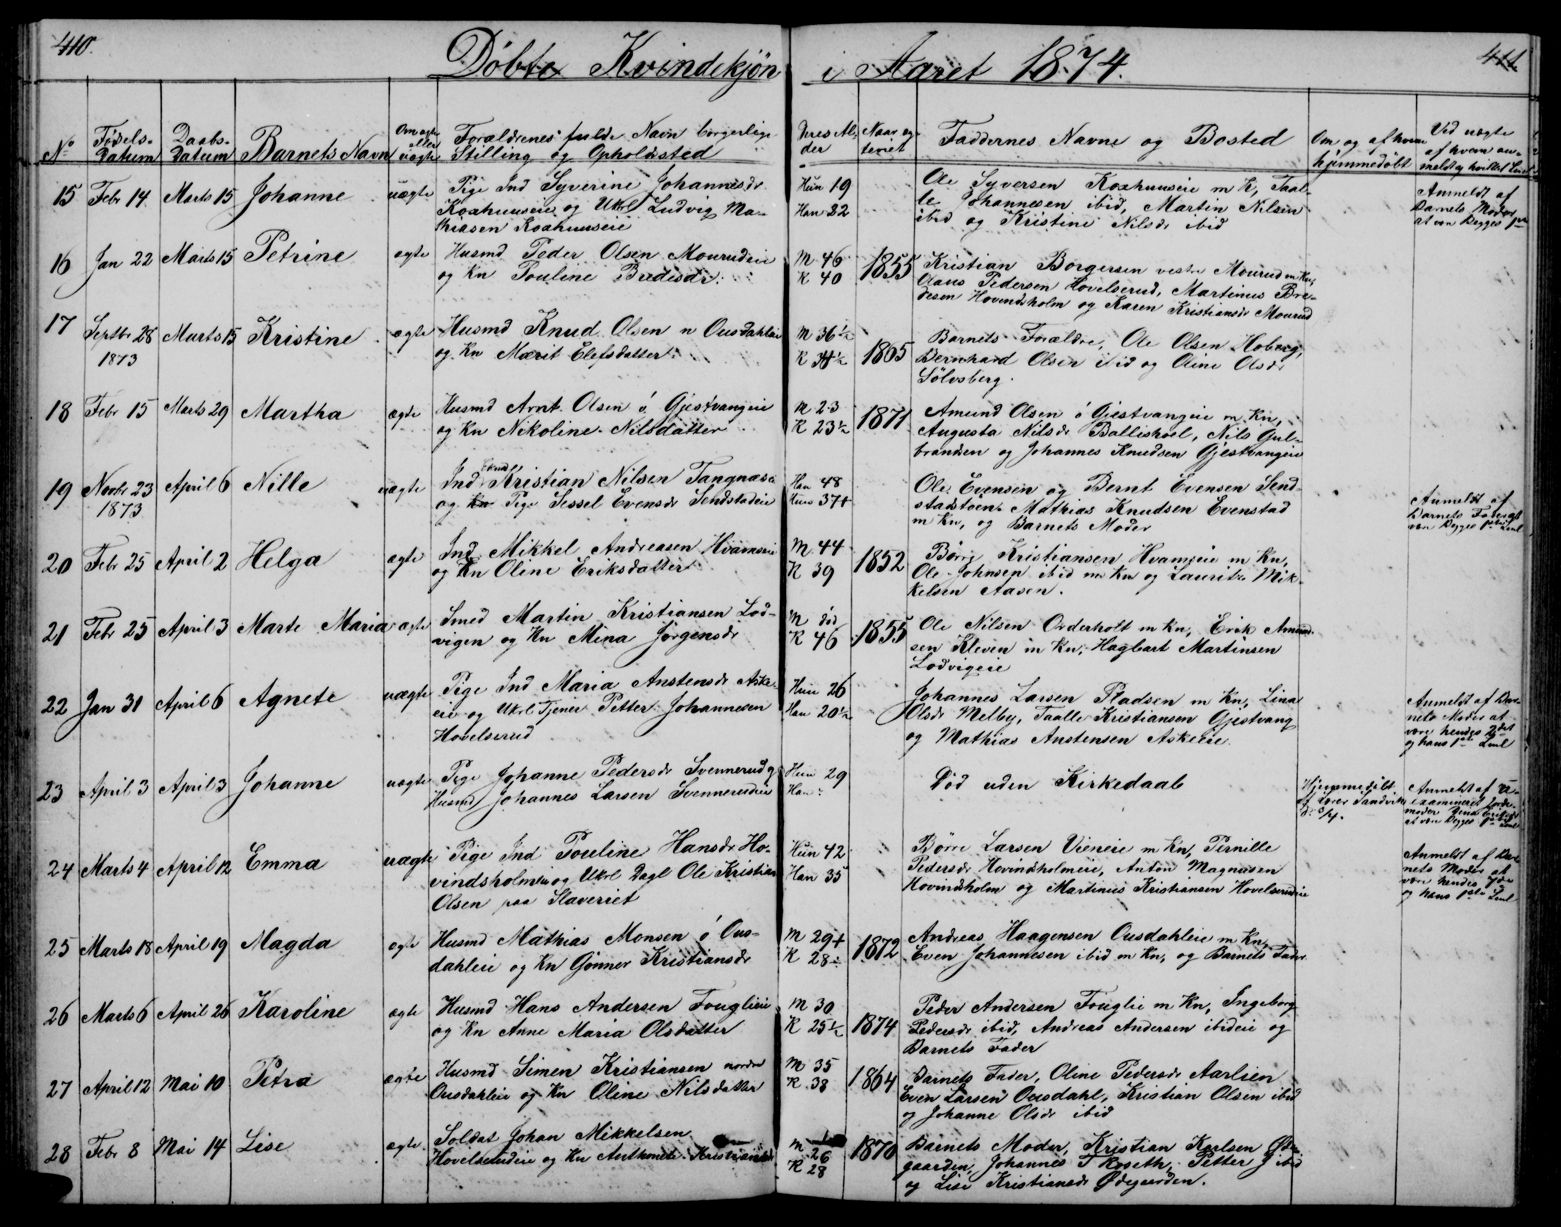 410.
Døbte Kvindekjøn i Aaret 1874.
411
No
Fødsels-
Datum
Daabs-
Datum
Barnets Navn
Om ægte
eller
uægte
Forældrenes fulde Navn borgerlige
Stilling og Opholdssted
Deres Al-
der
Naar eg-
teviet
Faddernes Navne og Bosted
Om og af hvem
hjemmedøbt
Ved uægte
af hvem an-
meldt og hvilket Leiel
15 Febr 14 Marts 15 Johanne uægte
Pige Ind Syverine Johannesdr
og Ukrl Ludvig Ma-
thiasen
Hun 19
Han 22
Ole Syversen m K,
Johannesen ibid, Martin Nilsen
ibid og Kristine Nilsdr ibid
Anmeldt af
Barnets Moder
at være Begges 1ste
16 Jan 22 Marts 15 Petrine ægte
Husmd Peder Olsen Mourudeie
og Kn Pouline Bredesdr.
M 46
K 40
1855
Kristian Borgersen vestre Mourud m Kn,
Olaus Pedersen Hovelserud, Martinus Bre-
desen Hovindsholm og Karen Kristiansdr Mourud
17 Septbr 28
1873
Marts 15 Kristine ægte
Husmd Knud Olsen n Ousdahleie
og Kn Marit Elefsdatter.
M 36½
K 34½
1865
Barnets Forældre, Ole Olsen Hoberg,
Bernhard Olsen ibid og Oline Olsdr
Sølvsberg.
18 Febr 15 Marts 29 Martha ægte
Husmd Arnt Olsen ó Gjestvangeie
og Kn Nikoline Nilsdatter
M 23
K 23½
1871
Amund Olsen ó Gjestvangeie m Kn,
Augusta Nilsdr Ballishoel, Nils Gul-
brandsen og Johannes Knudsen Gjestvangeie
19 Novbr 23
1873
April 6 Nille uægte
Ind Kristian Nilsen Tangnæs
og Pige Sissel Evensdr Sendstadeie
Han 48
Hun 37+
Ole Evensen og Bernt Evensen Send-
stadstøen Mathias Knudsen Evenstad
m Kn, og Barnets Moder
Anmeldt af
Barnets Fader at
være Begges 1ste Leiel
20 Febr 25 April 2 Helga ægte
Ind Mikkel Andreasen Hvamseie
og Kn Oline Eriksdatter
M 44
K 39
1852
Børre Kristiansen Hvamseie m Kn,
Ole Johnsen ibid m Kn og Lauritz Mik-
kelsen Aasen.
21 Febr 25 April 3 Marte Maria ægte
Smed Martin Kristiansen Lod-
vigen og Kn Mina Jørgensdr
M død
K 46
1855
Ole Nilsen Orderholt m Kn, Erik Amund-
sen Kleven m Kn, Hagbart Martinsen
Lodvigeie
22 Jan 31 April 6 Agnete uægte
Pige Ind Maria Anstensdr Aske-
eie og Ukrl Tjener Petter Johannesen
Hovelserud
Hun 26
Han 20½
Johannes Larsen Pladsen m Kn, Lina
Olsdr Melby, Taalle Kristiansen Gjestvang
og Mathias Anstensen Askeeie
Anmeldt af Bar-
nets Moder at
være hendes 2det
og hans 1ste Leiel
23 April 3 April 3 Johanne uægte
Pige Johanne Pedersdr Svennerud og
Husmd Johannes Larsen Svennerudeie
Hun 29
Han
Død uden Kirkedaab
Hjemmedøbt
af Lærer Sandvik
d: 3/4.
Anmeldt af
examineret Jorde-
moder
at være Begges 1ste Leiel
24 Marts 4 April 12 Emma uægte
Pige Ind Pouline Hansdr Ho-
vindsholm og Ukrl Dagl Ole Kristian
Olsen paa Slaveriet
Hun 42
Han 35
Børre Larsen Vieneie m Kn, Pernille
Pedersdr Hovindholmeie, Anton Magnusen
Hovindsholm og Martinus Kristiansen Hovelserudeie
Anmeldt af Bar-
nets Moder at
være hendes 7de
og hans 1ste Leiel
25 Marts 18 April 19 Magda ægte
Husmd Mathias Monsen ó Ous-
dahleie og Kn Gønner Kristiansdr
M 29+
K 28
1872
Andreas Haagensen Ousdahleie m Kn,
Even Johannesen ibid m Kn, og Barnets Fader
26 Marts 6 April 26 Karoline ægte
Husmd Hans Andersen Fouglieie
og Kn Anne Maria Olsdatter
M 30
K 25½
1874
Peder Andersen Fouglie m Kn, Ingeborg
Pedersdr ibid, Andreas Andersen ibideie og
Barnets Fader
27 April 12 Mai 10 Petra ægte
Husmd Simen Kristiansen nordre
Ousdahleie og Kn Oline Nilsdatter
M 35
K 38
1864
Barnets Fader, Oline Pedersdr Aarlien
Even Larsen Ousdahl, Kristian Olsen ibid
og Johanne Olsdr ibid
28 Febr 8 Mai 14 Lise ægte
Soldat Johan Mikkelsen
Hovelserudeie og Kn Anthonette Kristiansdr
M 26
K 28
1870
Barnets Moder, Kristian Karlsen Øde-
gaarden, Johannes Petter ibid
og Lise Kristiansdr Ødegaarden.